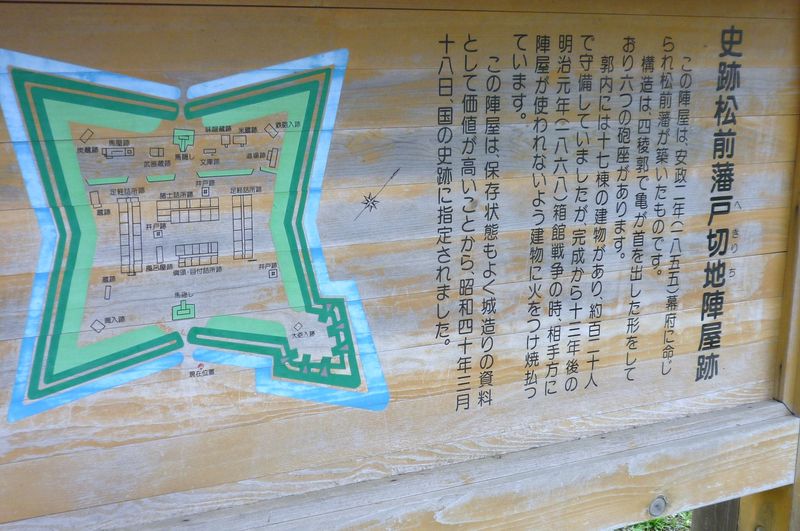 史跡松前藩戸切地陣屋跡
へきりち
この陣屋は、安政二年(一八五五)幕府に命じ
られ松前藩が築いたものです。
構造は、四稜郭で亀が首を出した形をして
おり六つの砲座があります。
郭内には十七棟の建物があり、約百二十人
で守備していましたが、完成から十三年後の
明治元年(一八六八)箱館戦争の時、相手方に
陣屋が使われないよう建物に火をつけ焼払っ
ています。
この陣屋は、保存状態もよく城造りの資料
として価値が高いことから、昭和四十年三月
十八日、国の史跡に指定されました。
炭蔵跡
馬屋跡
武器蔵跡
馬隠し
味噌蔵跡
米蔵跡
鉄砲入跡
文庫跡
道場跡
蔵跡
足軽詰所跡
諸士詰所跡
井戸跡
足軽詰所跡
井戸跡
風呂屋跡
備頭・目付詰所跡
井戸跡
蔵跡
馬隠し
大砲入跡
現在位置